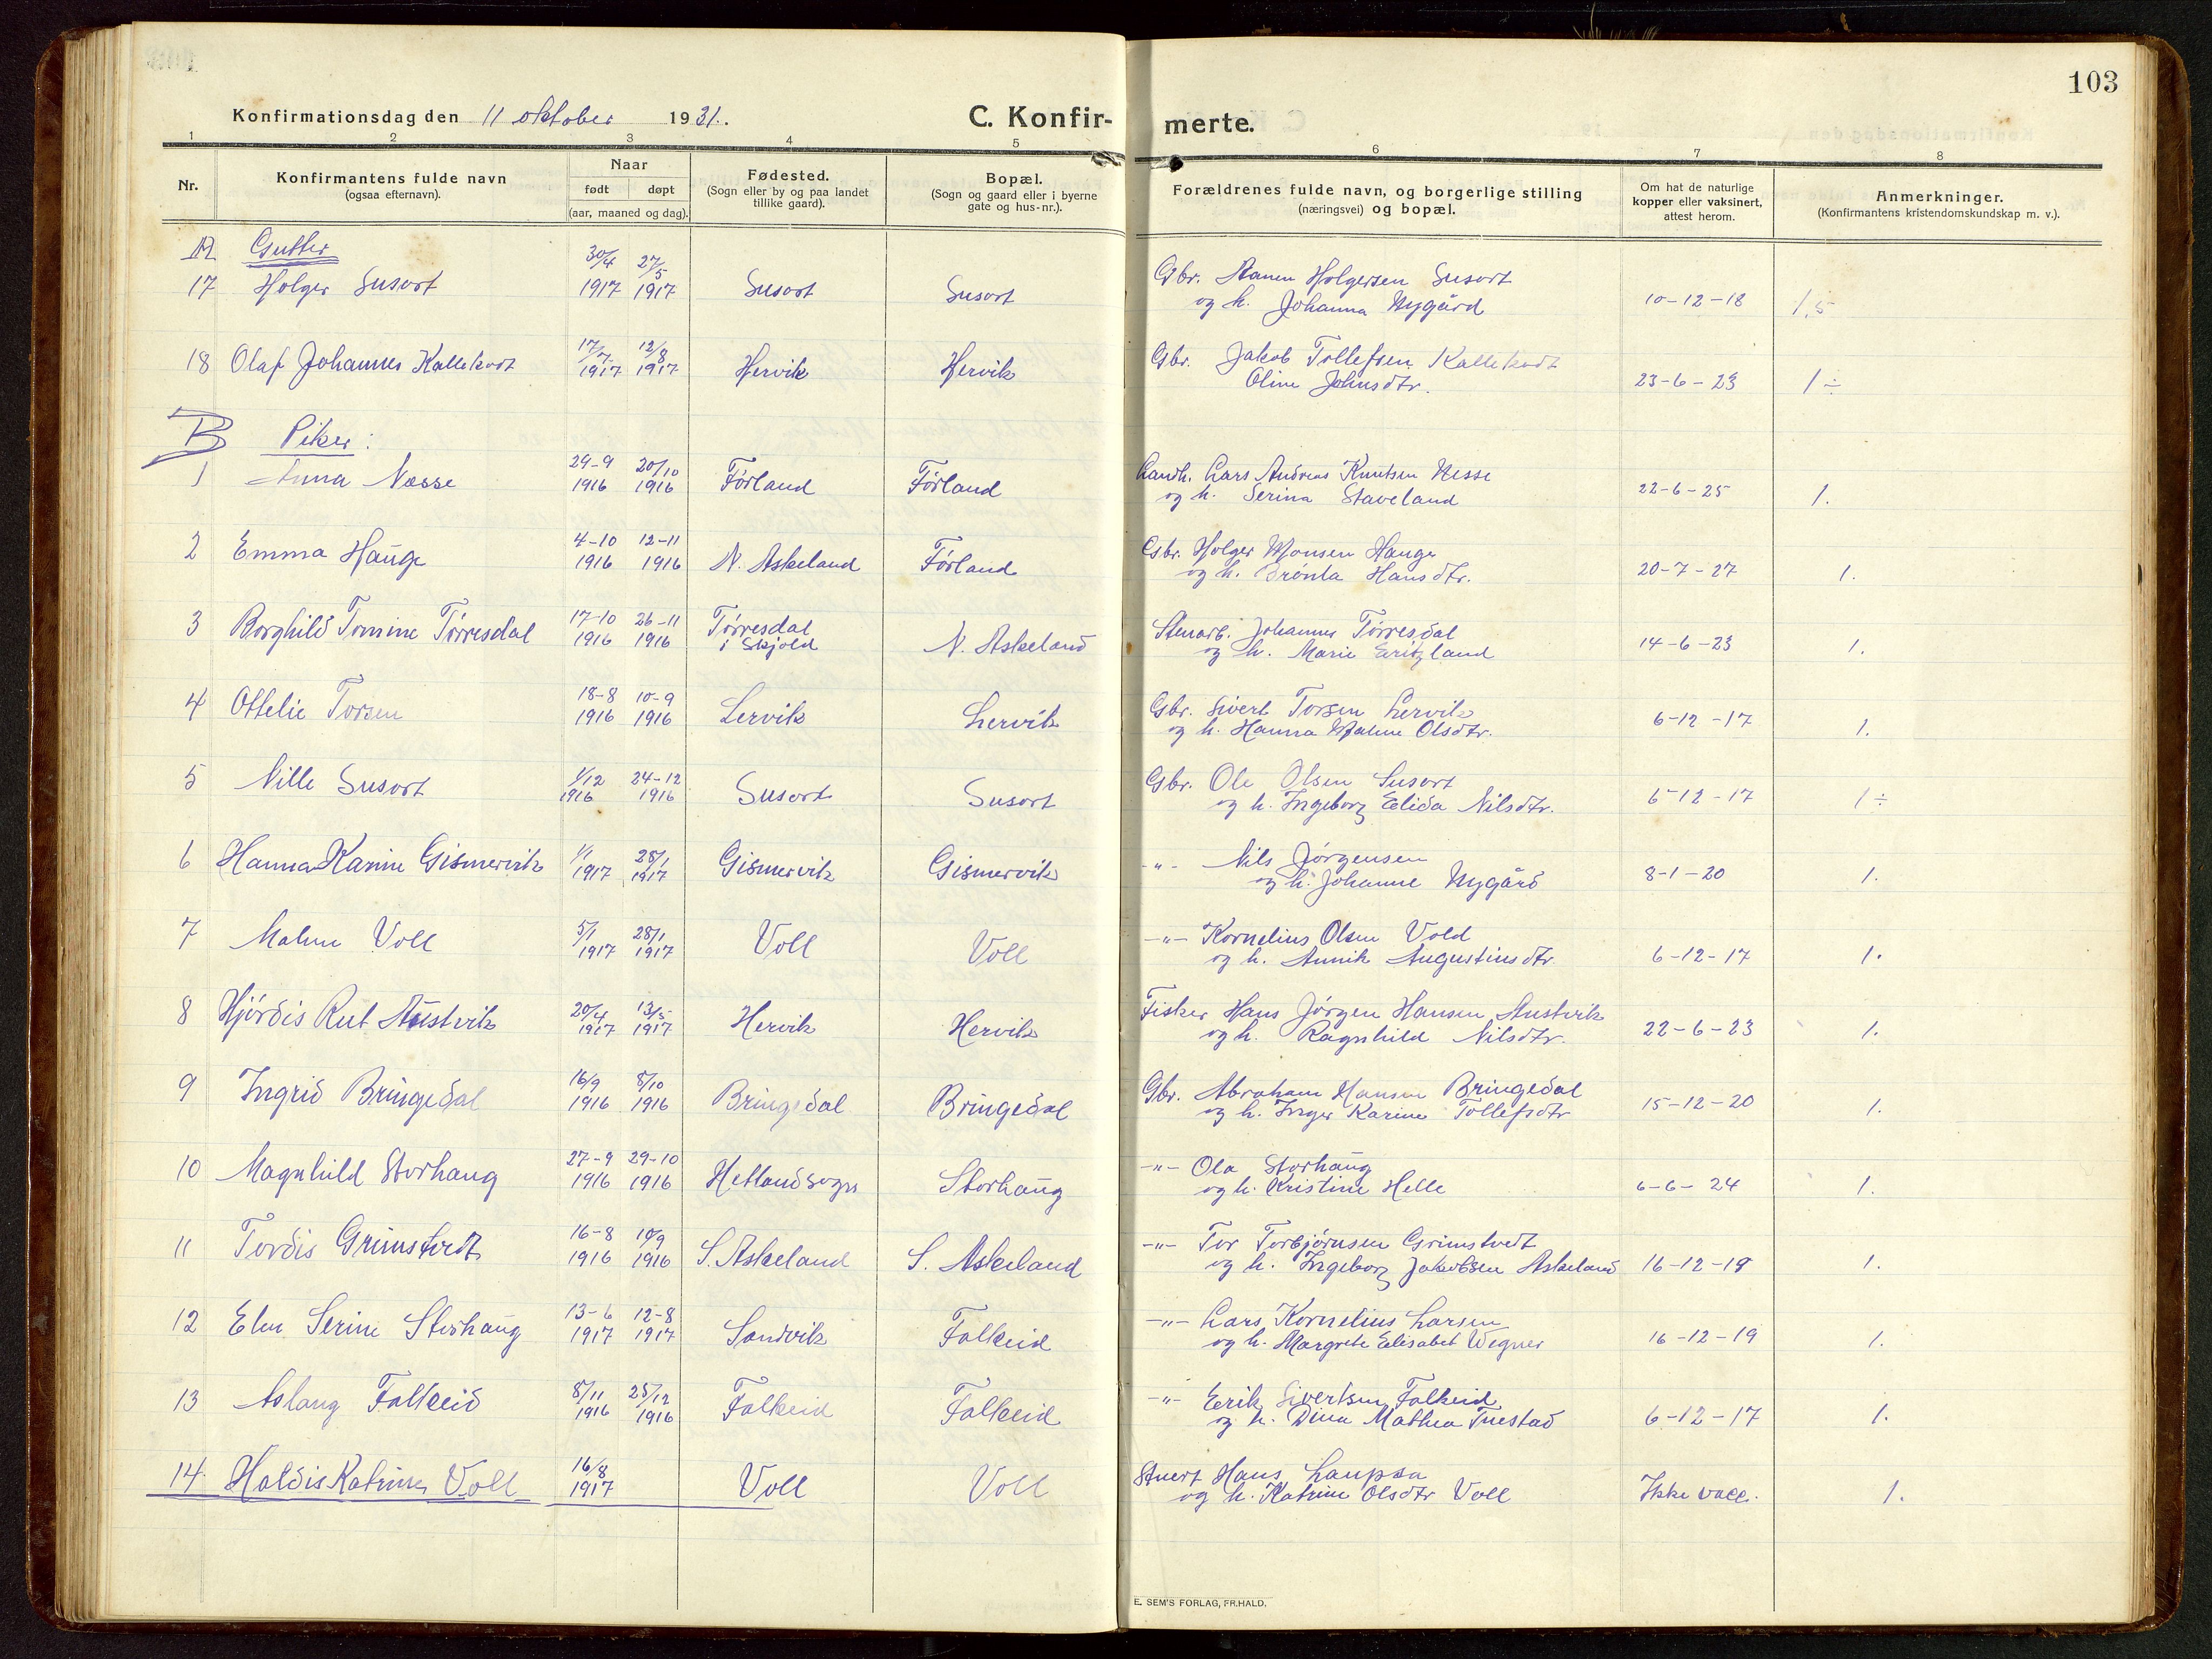 103
Konfirmationsdag den 11 oktober 1931.
C. Konfirmerte.
1 2 3 4 5 6 7 8
Nr.
Konfirmantens fulde navn
(ogsaa efternavn).
Naar
født døpt
(aar, maaned og dag).
Fødested.
(Sogn eller by og paa landet
tillike gaard).
Bopæl.
(Sogn og gaard eller i byerne
gate og hus-nr.).
Forældrenes fulde navn, og borgerlige stilling
(næringsvei) og bopæl.
Om hat de naturlige
kopper eller vaksinert,
attest herom.
Anmerkninger.
(Konfirmantens kristendomskundskap m. v.).
A Gutter
30/4 27/5 Gbr. Aanen Holgersen Susort
17 Holger Susort 1917 1917 Susort Susort og h. Johanna Nygård 10-12-18 1,5
17/7 12/8 Gbr. Jakob Tollefsen Kallekodt
18 Olaf Johannes Kallekodt 1917 1917 Hervik Hervik Oline Johnsdtr. 23-6-23 1÷
B Piker:
29-9 20/10 Landh. Lars Andreas Knutsen Nesse
1 Anna Næsse 1916 1916 Førland Førland og h. Serina Staveland 22-6-25 1.
4-10 12-11 Gbr. Holger Monsen Hauge
2 Emma Hauge 1916 1916 N. Askeland Førland og h. Brønla Hansdtr. 20-7-27 1.
17-10 26-11 Tørresdal Stenarb. Johannes Tørresdal
3 Borghild Tomine Tørresdal 1916 1916 i Skjold N. Askeland og h. Marie Eritzland 14-6-23 1.
18-8 10-9 Gbr. Sivert Torsen Lervik
4 Ottelie Torsen 1916 1916 Lervik Lervik og h. Hanna Malene Olsdtr. 6-12-17 1.
1/12 24-12 Gbr. Ole Olsen Susort
5 Nille Susort 1916 1916 Susort Susort og h. Ingeborg Elida Nilsdtr. 6-12-17 1÷
1/1 28/1 -"- Nils Jørgensen
6 Hanna Karine Gismervik 1917 1917 Gismervik Gismervik og h. Johanne Nygård 8-1-20 1.
5/1 28/1 -"- Kornelius Olsen Vold
7 Malene Voll 1917 1917 Voll Voll og h. Annik Augustinsdtr. 6-12-17 1.
20/4 13/5 Fisker Hans Jørgen Hansen Austvik
8 Hjørdis Rut Austvik 1917 1917 Hervik Hervik og h. Ragnhild Nilsdtr. 22-6-23 1.
16/9 8/10 Gbr. Abraham Hansen Bringedal
9 Ingrid Bringedal 1916 1916 Bringedal Bringedal og h. Inger Karine Tollefsdtr 15-12-20 1.
27-9 29-10 -"- Ola Storhaug
10 Magnhild Storhaug 1916 1916 Hetlandsogn Storhaug og h. Kristine Helle 6-6-24 1.
16-8 10/9 -"- Tor Torbjørnsen Grimstvedt
11 Tordis Grimstvedt 1916 1916 S. Askeland S. Askeland og h. Ingeborg Jakobsen Askeland 16-12-19 1.
13-6 12-8 -"- Lars Kornelius Larsen
12 Elen Serine Storhaug 1917 1917 Sandvik Falkeid og h. Margrete Elisabet Wegner 16-12-19 1.
8/11 25/12 -"- Eerik Sivertsen Falkeid
13 Aslaug Falkeid 1916 1916 Falkeid Falkeid og h. Dina Mathea Tuestad 6-12-17 1.
16/8 Stuert Hans Laupsa
14 Haldis Katrine Voll 1917 Voll Voll og h. Katrine Olsdtr Voll Ikke vacc. 1.
E. SEM'S FORLAG, FR.HALD.